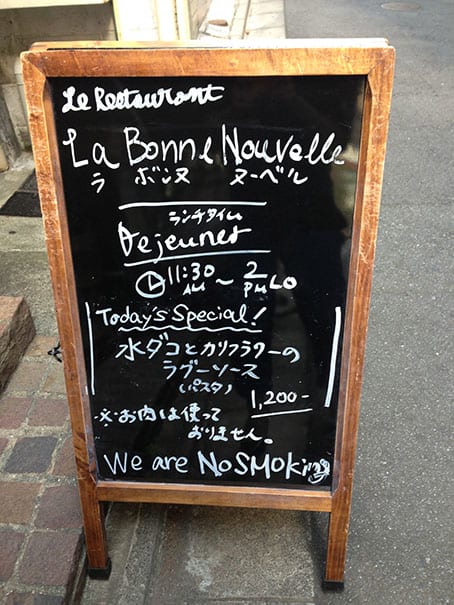 Le Restaurant
La Bonne Nouvelle
ラ ボンヌ ヌーベル
ランチタイム
Dejeuner
11:30 AM ~ 2 PM LO
Today's Special!
水ダコとカリフラワーの
ラグーソース
(パスタ)
1,200-
※お肉は使って
おりません。
We are NoSMOKing